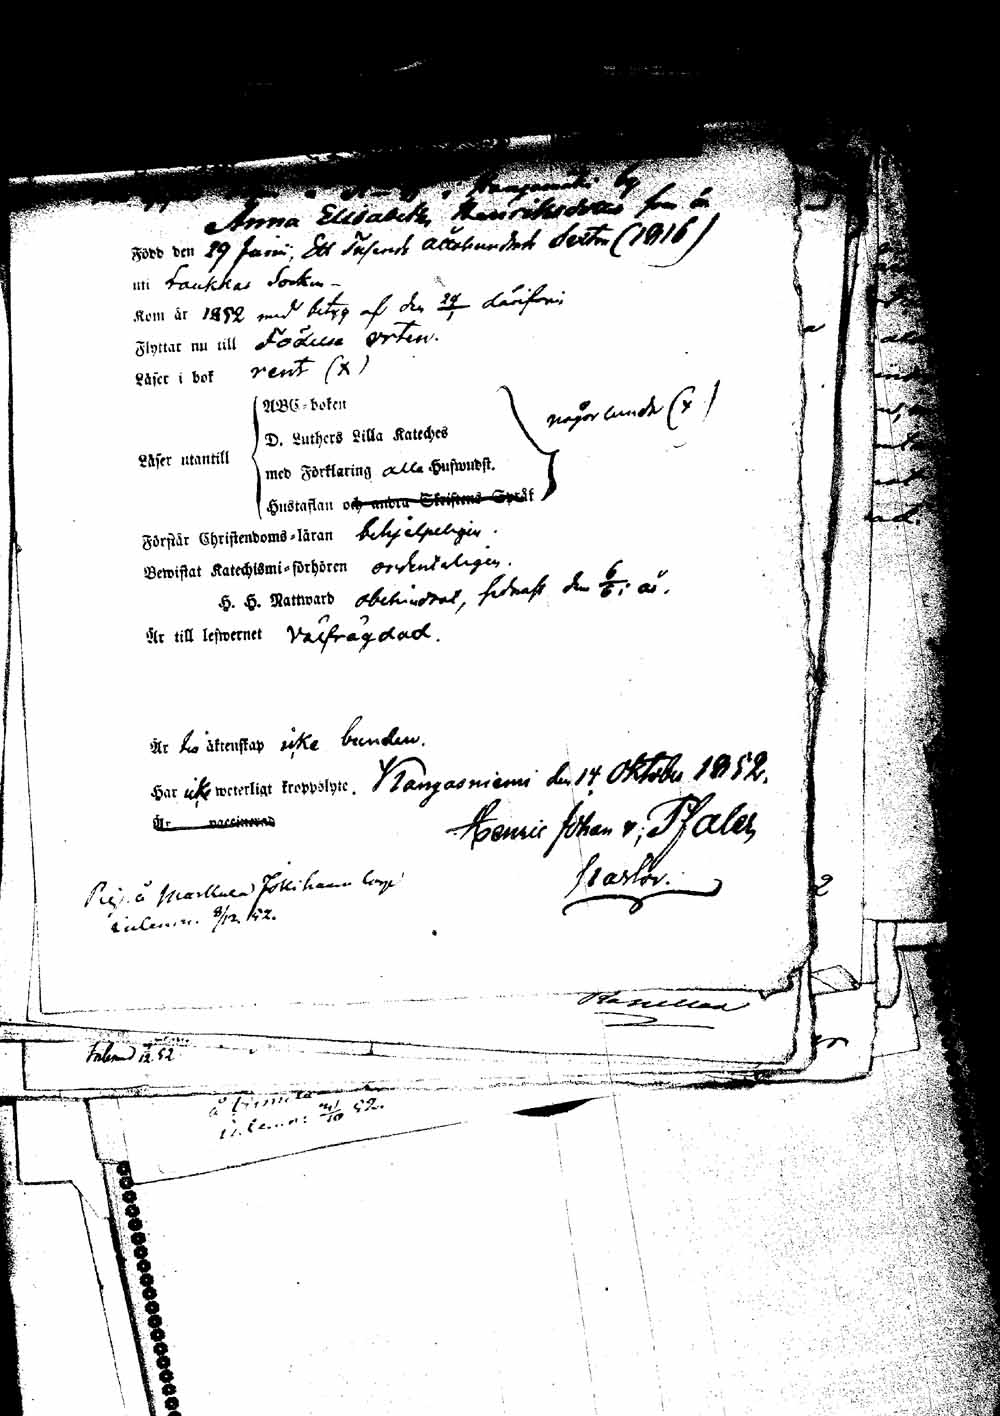 by
Anna Elisabeth Henriksdotter som är
Född den 29 Junii, Ett Tusende Åttahundrade Sexton (1816)
uti Laukkas Socken
Kom år 1852 med betyg af den 24/1 därifrån
Flyttar nu till Födelse orten.
Läser i bok rent (x)
ABC-boken
D. Luthers Lilla Kateches
Läser utantill någorlunda (x)
med Förklaring alla Huswudst.
Hustaflan och andra Skriftens Språk
Förstår Christendoms-läran behjelpeligen.
Bewistat Katechismi-förhören ordenteligen.
H. H. Nattward obehindrat, sednast den 6/6 i år.
Är till lefwernet Välfrägdad.
Är till äktenskap icke bunden.
Har icke weterligt kroppslyte. Kangasniemi den 14 Oktober 1852.
Är vaccinerad
Henric Johan v. Pfaler
Pig. å Markkula
inlemn. 8/12 52.
2
52
å
inlemn: 52.